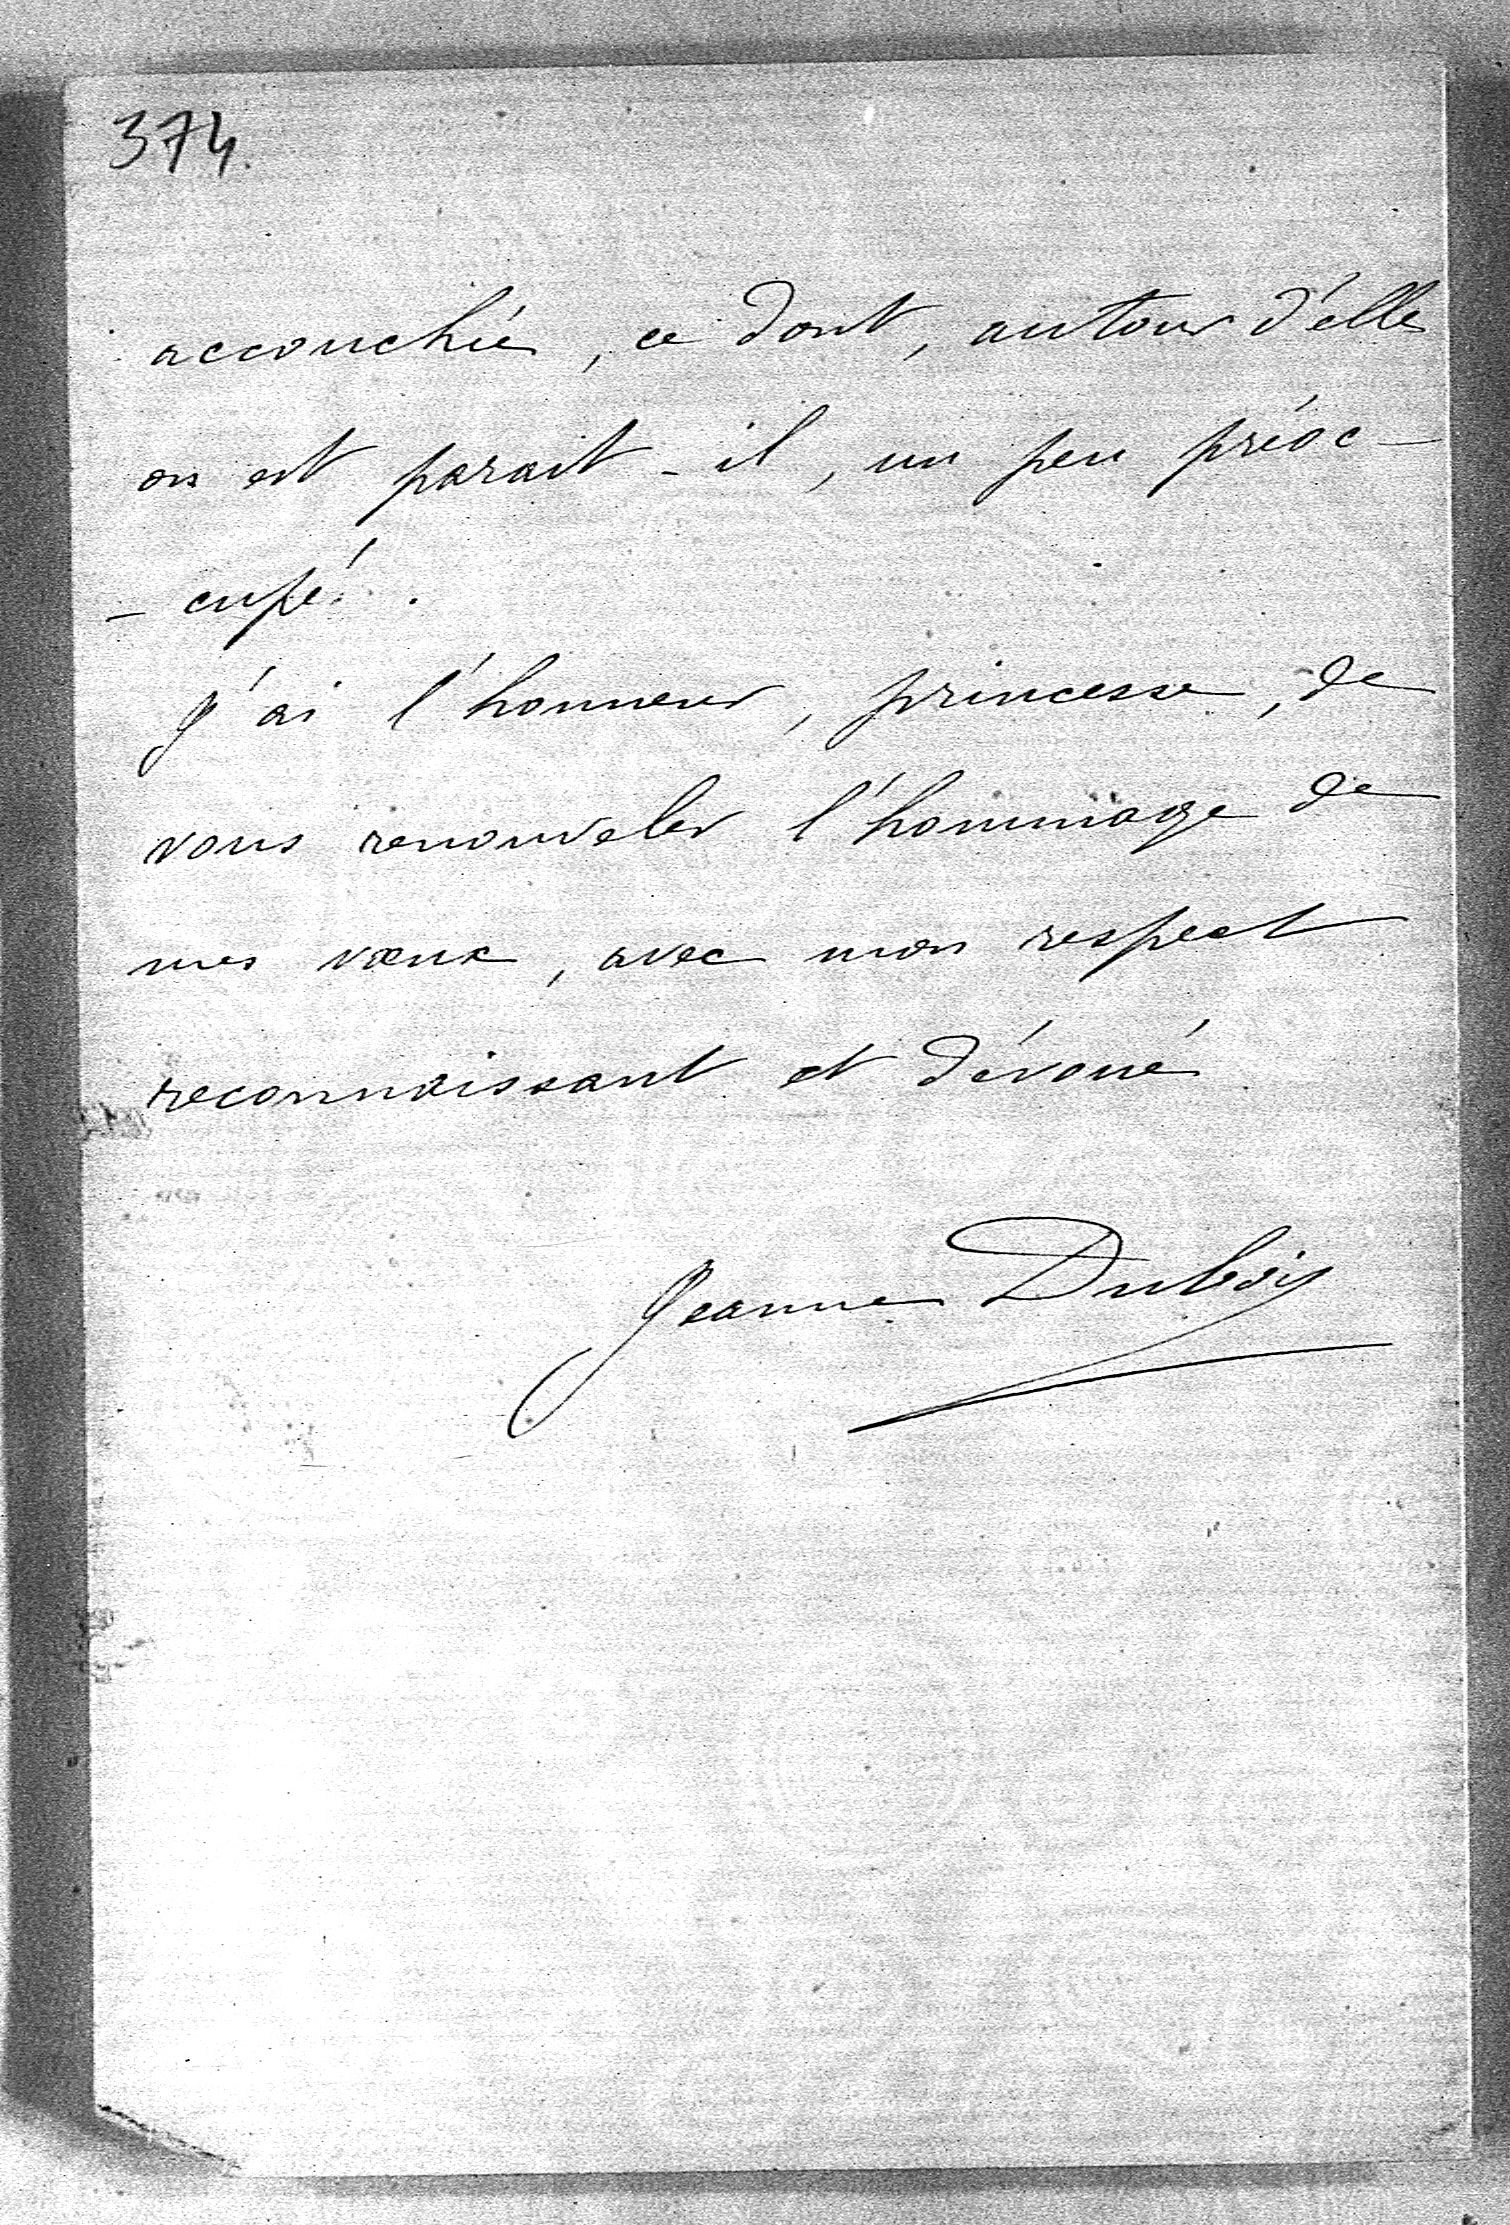 374.
accouchée, ce dont, autour d'elle
on est parait-il, un peu préoc-
-cupé.
J'ai l'honneur, princesse, de
vous renouveler l'hommage de
mes vœux, avec mon respect
reconnaissant et dévoué
Jeanne Dubois